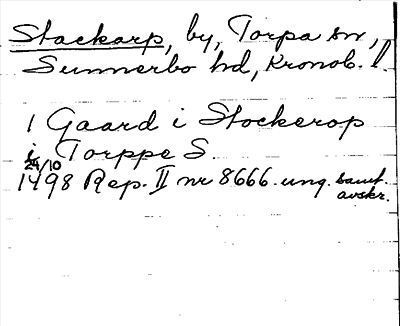 Stackarp, by, Torpa sn,
Sunnerbo hd, Kronob. l.
1 Gaard i Stockerop
i Torppe S.
24/10
1498 Rep. II nr 8666. ung. samt.
avskr.